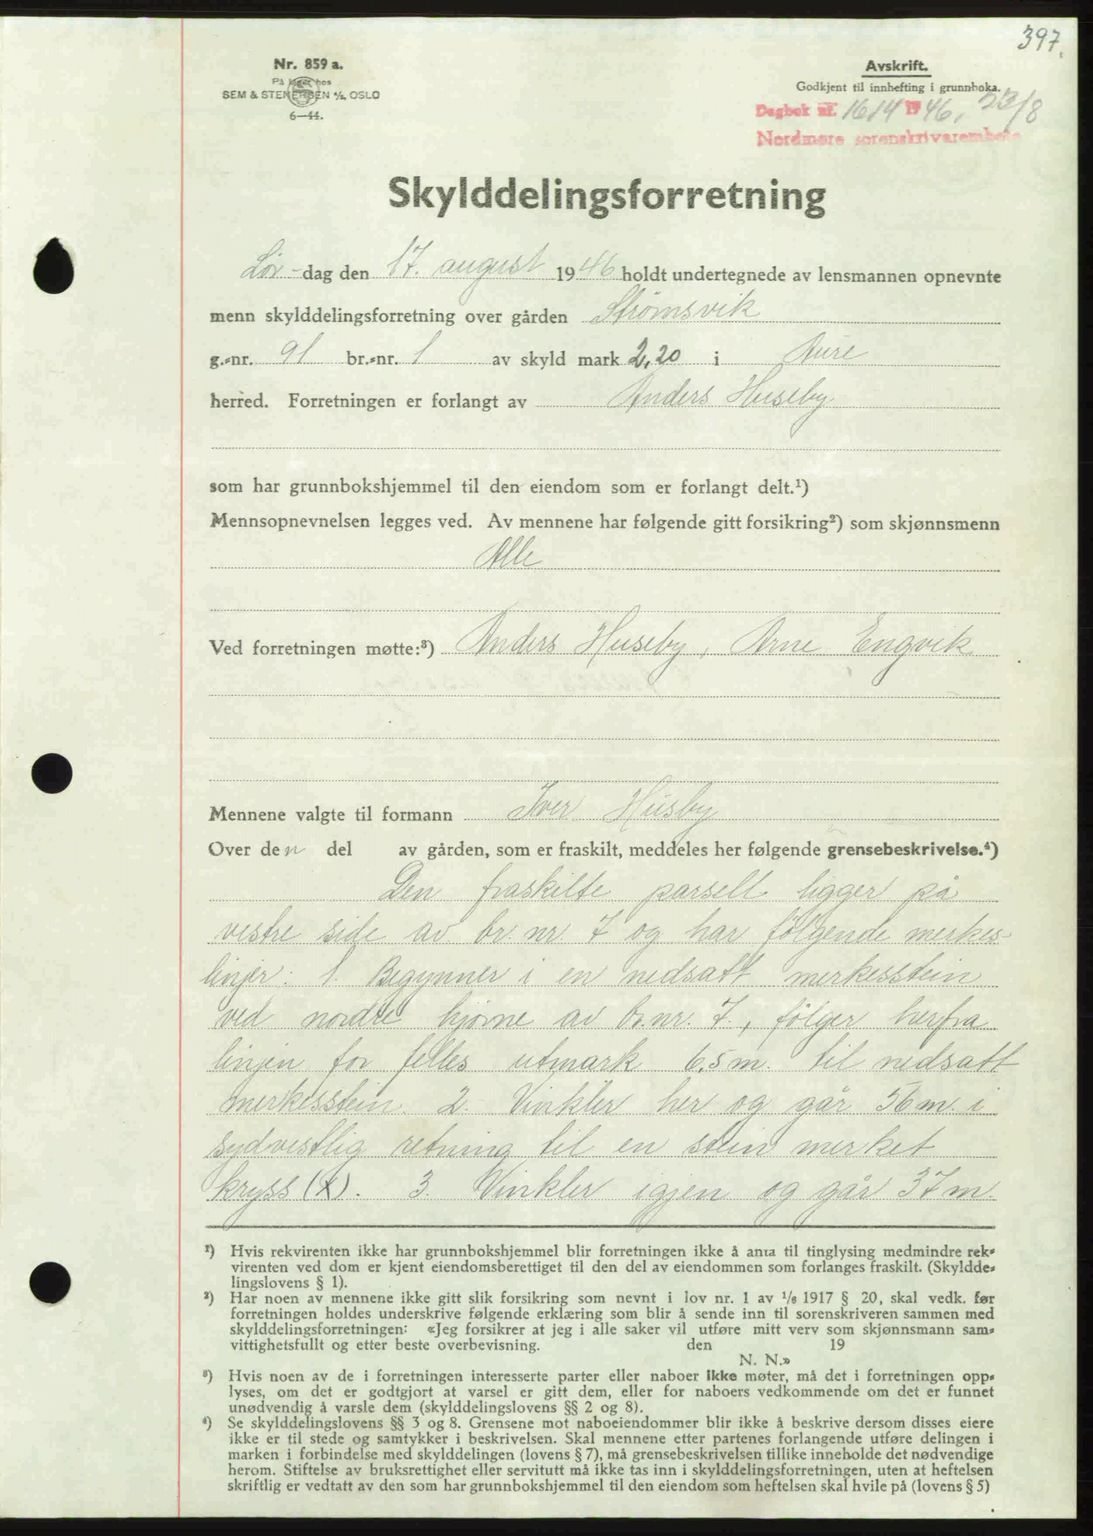 397.
Nr. 859 a.
På lager hos
SEM & STENERSEN A/S, OSLO
6—44.
Avskrift.
Godkjent til innhefting i grunnboka.
Dagbok nr. 1614 1946, /8
Nordmøre sorenskriverembete
Skylddelingsforretning
Lør-dag den 17. august 1946 holdt undertegnede av lensmannen opnevnte
menn skylddelingsforretning over gården Strømsvik
g.-nr. 91 br.-nr. 1 av skyld mark 2,20 i Aure
herred. Forretningen er forlangt av Anders Huseby
som har grunnbokshjemmel til den eiendom som er forlangt delt.¹)
Mennsopnevnelsen legges ved. Av mennene har følgende gitt forsikring²) som skjønnsmenn
Alle
Ved forretningen møtte:³) Anders Huseby, Arne Engvik
Mennene valgte til formann Iver Husby
Over den del av gården, som er fraskilt, meddeles her følgende grensebeskrivelse.⁴)
Den fraskilte parsell ligger på
vestre side av br. nr 7 og har følgende merkes-
linjer: 1. Begynner i en nedsatt merkesstein
ved nordre hjørne av br.nr. 7., følger herfra
linjen for felles utmark 6,5 m. til nedsatt
merkesstein 2. Vinkler her og går 56 m. i
sydvestlig retning til en stein merket
kryss (x). 3. Vinkler igjen og går 37 m.
¹) Hvis rekvirenten ikke har grunnbokshjemmel blir forretningen ikke å anta til tinglysing medmindre rek-
virenten ved dom er kjent eiendomsberettiget til den del av eiendommen som forlanges fraskilt. (Skyldde-
lingslovens § 1).
²) Har noen av mennene ikke gitt slik forsikring som nevnt i lov nr. 1 av 1/6 1917 § 20, skal vedk. før
forretningen holdes underskrive følgende erklæring som blir å sende inn til sorenskriveren sammen med
skylddelingsforretningen: «Jeg forsikrer at jeg i alle saker vil utføre mitt verv som skjønnsmann sam-
vittighetsfullt og etter beste overbevisning. den 19
N. N.»
³) Hvis noen av de i forretningen interesserte parter eller naboer ikke møter, må det i forretningen opp-
lyses, om det er godtgjort at varsel er gitt dem, eller for naboers vedkommende om det er funnet
unødvendig å varsle dem (skylddelingslovens §§ 2 og 8).
⁴) Se skylddelingslovens §§ 3 og 8. Grensene mot naboeiendommer blir ikke å beskrive dersom disses eiere
ikke er til stede og samtykker i beskrivelsen. Skal mennene etter partenes forlangende utføre delingen i
marken i forbindelse med skylddelingen (lovens § 7), må grensebeskrivelsen tillike inneholde det nødvendige
herom. Stiftelse av bruksrettighet eller servitutt må ikke tas inn i skylddelingsforretningen, uten at heftelsen
skriftlig er vedtatt av den som har grunnbokshjemmel til den eiendom som heftelsen skal hvile på (lovens § 5)